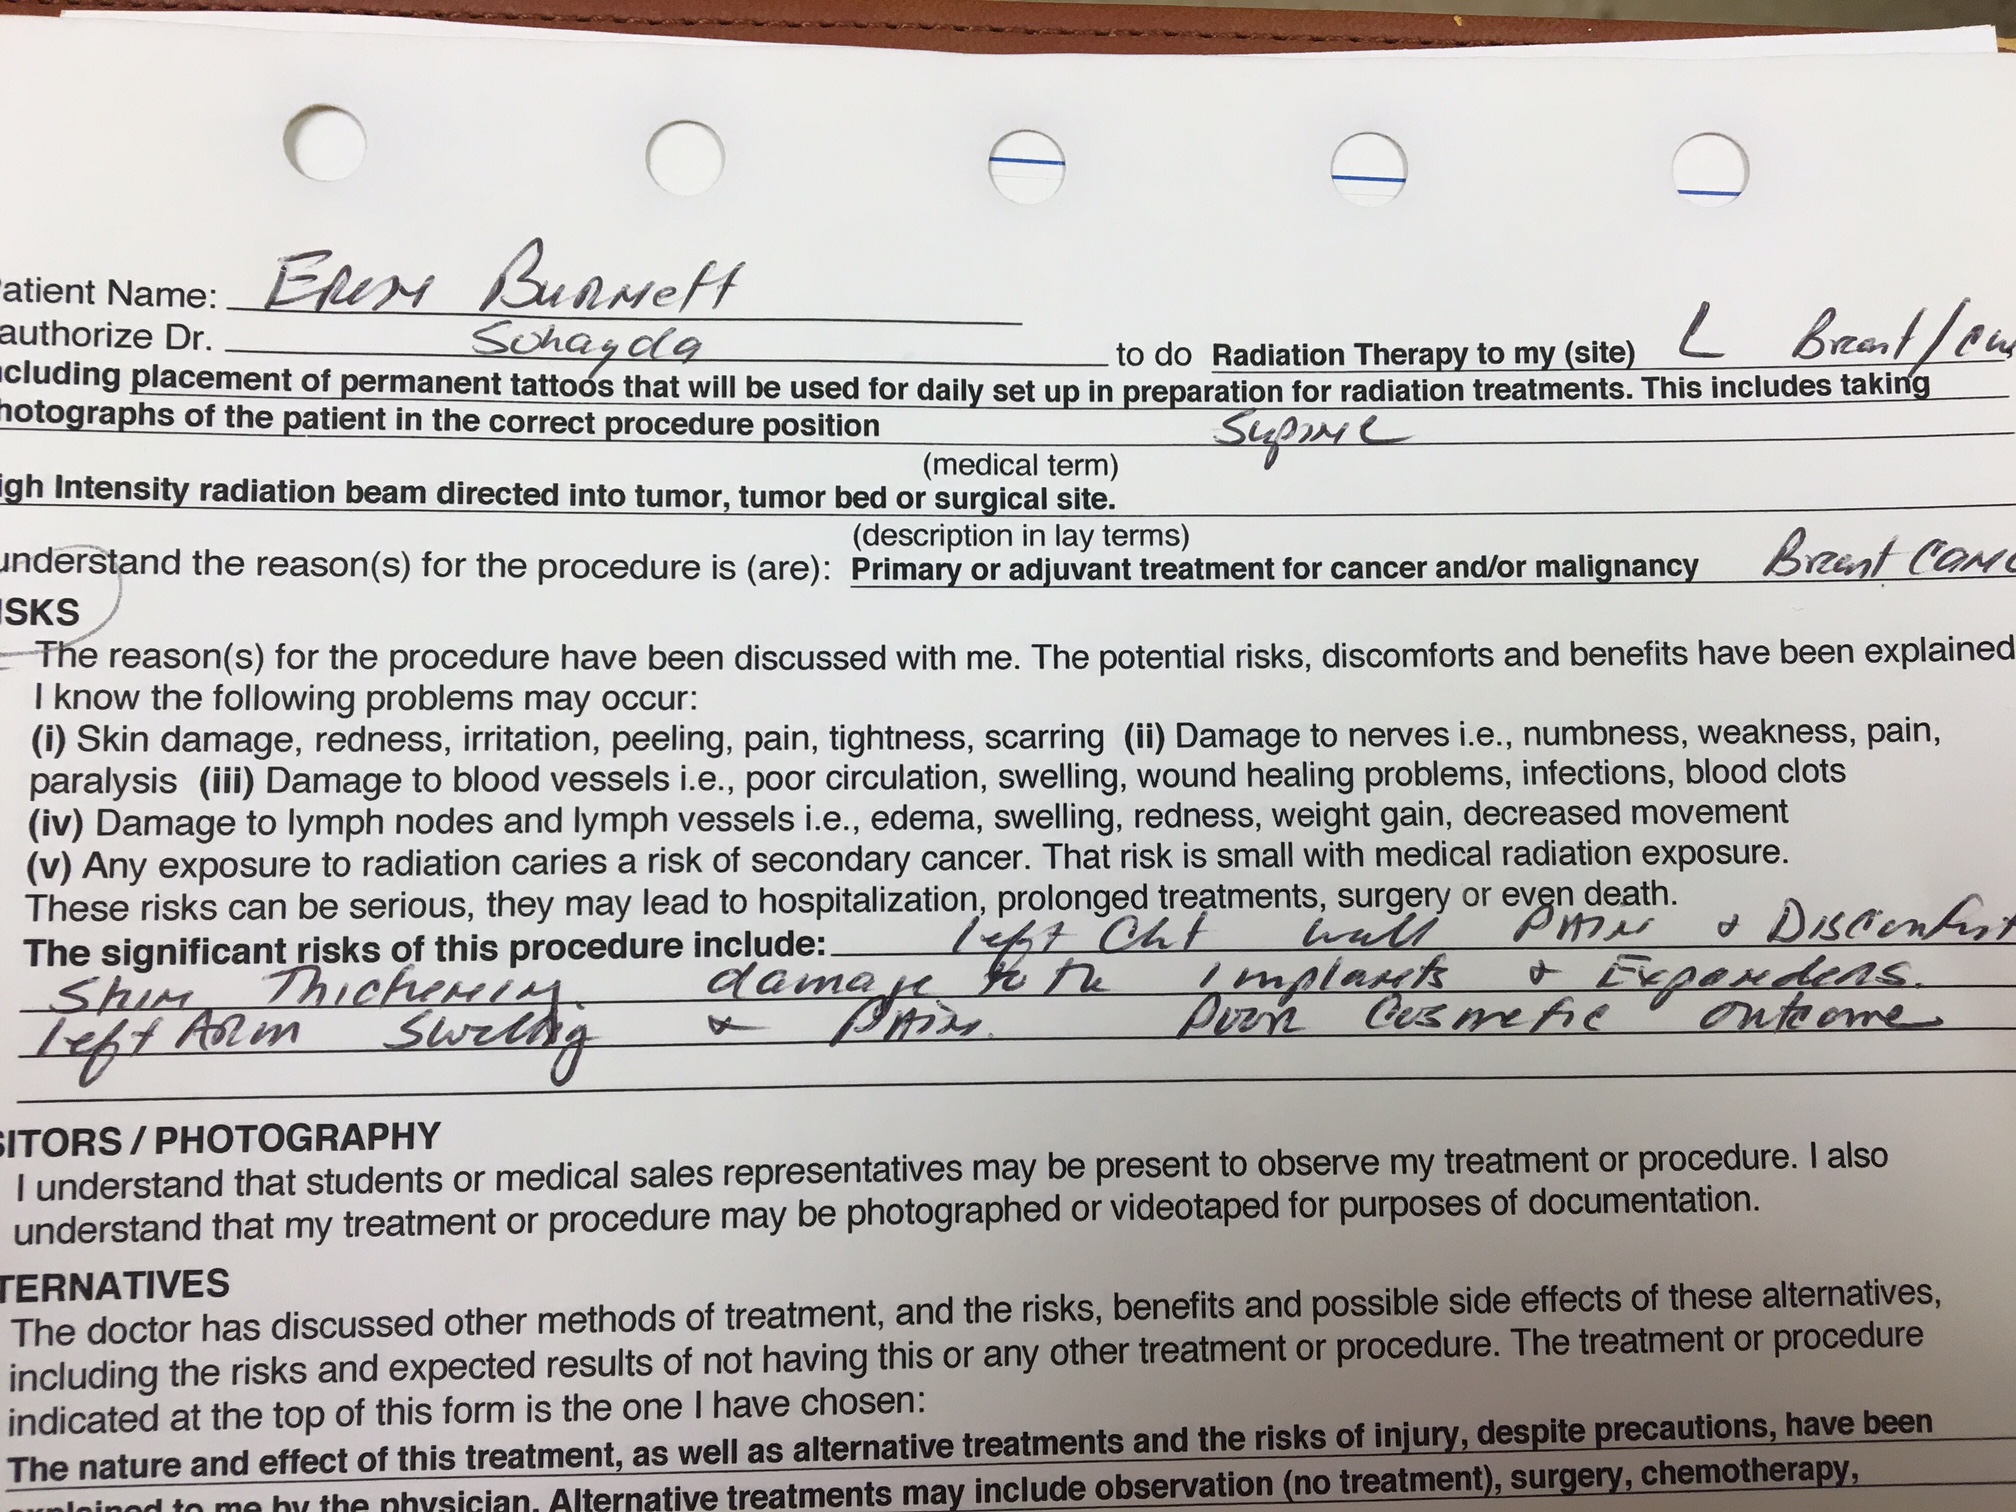 atient Name: Erin Burnett
authorize Dr. Sohayda to do Radiation Therapy to my (site) L Breast/
cluding placement of permanent tattoos that will be used for daily set up in preparation for radiation treatments. This includes taking
hotographs of the patient in the correct procedure position Supine
(medical term)
igh Intensity radiation beam directed into tumor, tumor bed or surgical site.
(description in lay terms)
understand the reason(s) for the procedure is (are): Primary or adjuvant treatment for cancer and/or malignancy Breast Canc
ISKS
The reason(s) for the procedure have been discussed with me. The potential risks, discomforts and benefits have been explained
I know the following problems may occur:
(i) Skin damage, redness, irritation, peeling, pain, tightness, scarring (ii) Damage to nerves i.e., numbness, weakness, pain,
paralysis (iii) Damage to blood vessels i.e., poor circulation, swelling, wound healing problems, infections, blood clots
(iv) Damage to lymph nodes and lymph vessels i.e., edema, swelling, redness, weight gain, decreased movement
(v) Any exposure to radiation caries a risk of secondary cancer. That risk is small with medical radiation exposure.
These risks can be serious, they may lead to hospitalization, prolonged treatments, surgery or even death.
The significant risks of this procedure include: left Cht wall Pain & Discomfort
Skin Thickening. damage to the Implants & Expanders.
left Arm Swelling & Pain. Poor Cosmetic outcome
SITORS / PHOTOGRAPHY
I understand that students or medical sales representatives may be present to observe my treatment or procedure. I also
understand that my treatment or procedure may be photographed or videotaped for purposes of documentation.
TERNATIVES
The doctor has discussed other methods of treatment, and the risks, benefits and possible side effects of these alternatives,
including the risks and expected results of not having this or any other treatment or procedure. The treatment or procedure
indicated at the top of this form is the one I have chosen:
The nature and effect of this treatment, as well as alternative treatments and the risks of injury, despite precautions, have been
explained to me by the physician. Alternative treatments may include observation (no treatment), surgery, chemotherapy,